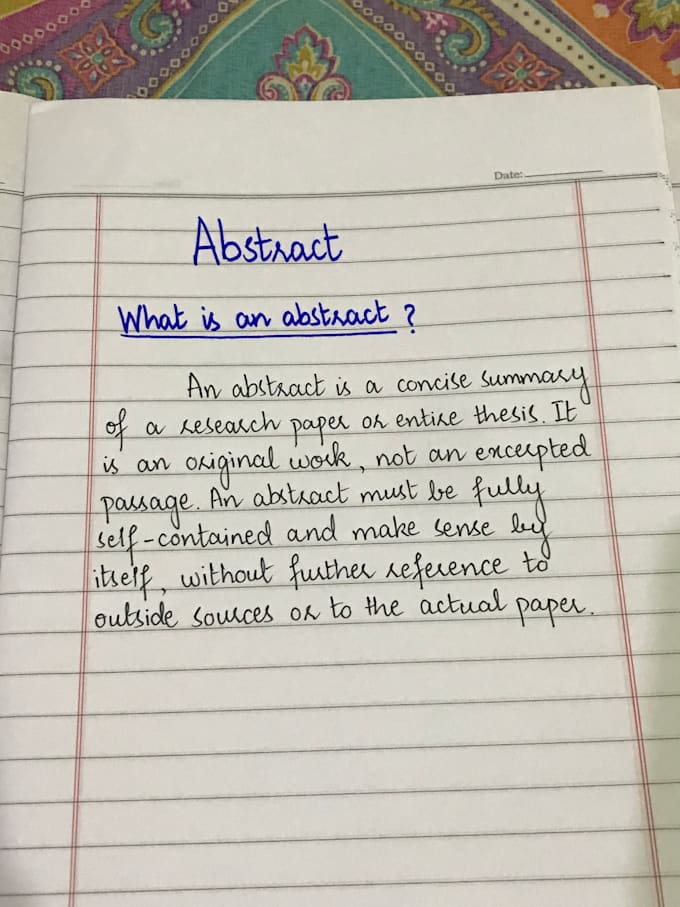 Date:
Abstract
What is an abstract ?
An abstract is a concise summary
of a research paper or entire thesis. It
is an original work, not an excerpted
passage. An abstract must be fully
self-contained and make sense by
itself, without further reference to
outside sources or to the actual paper.